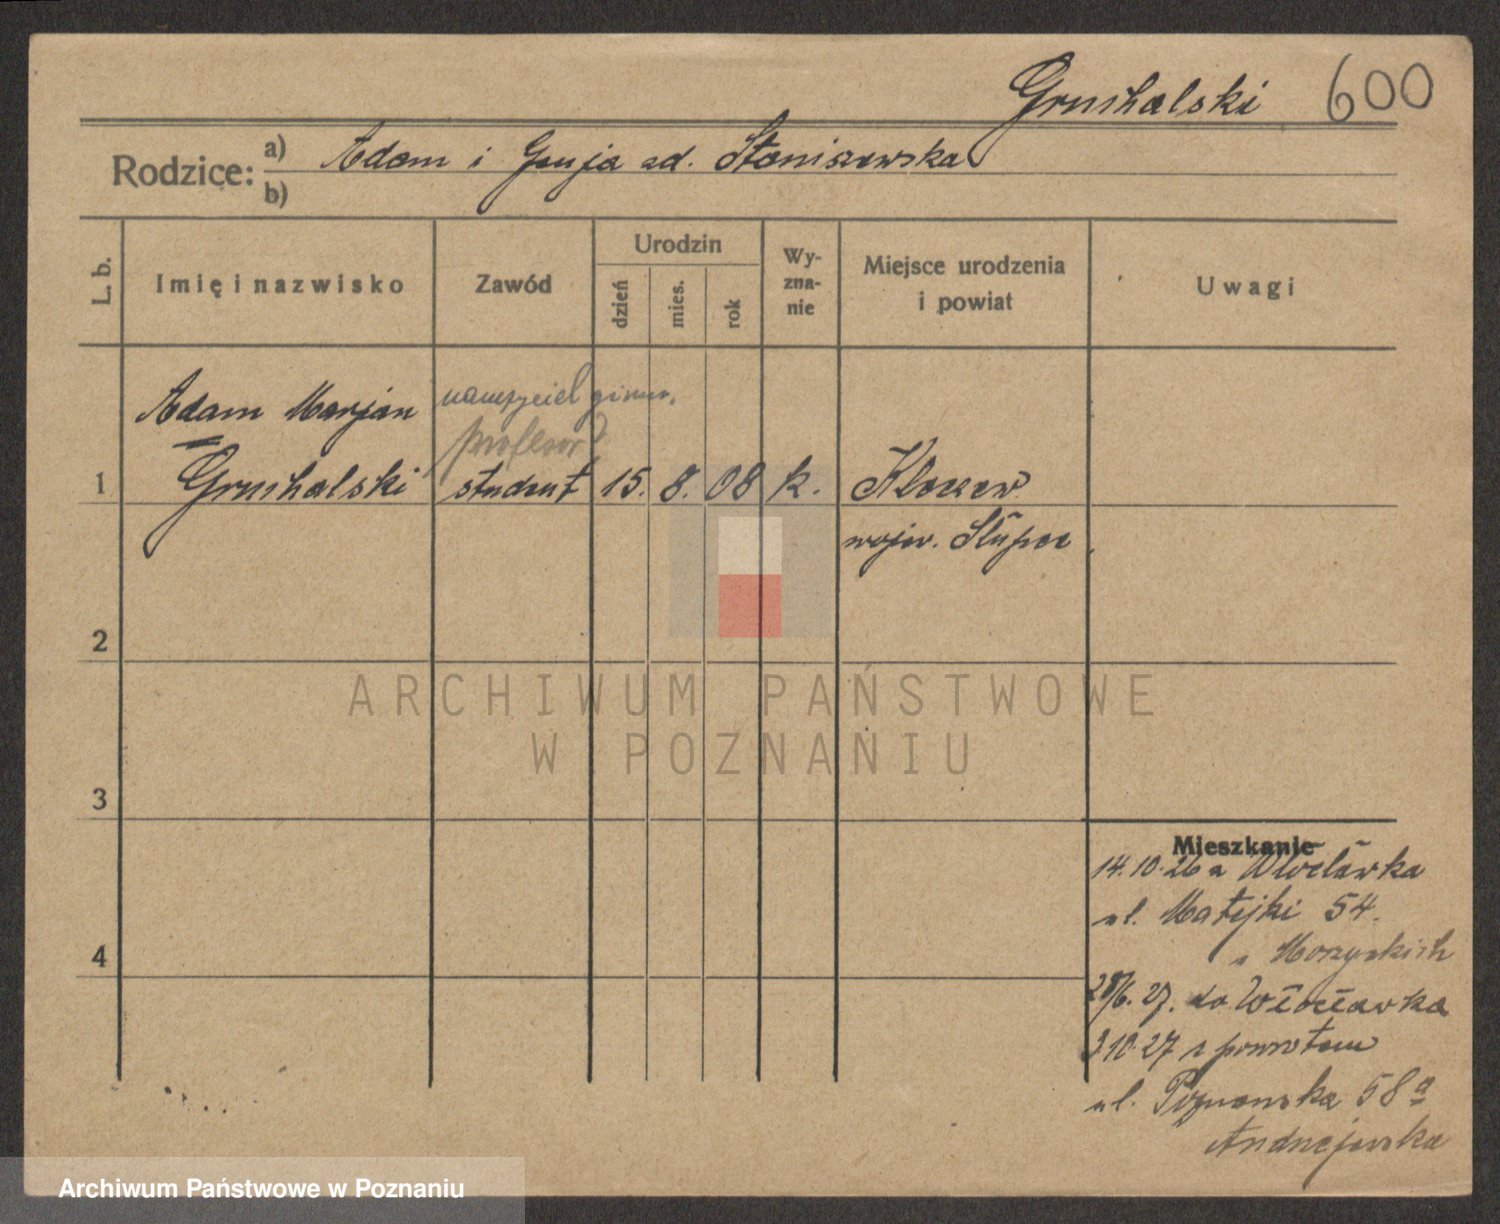 Gruchalski 600
Rodzice: a) Adam i Genja zd. Staniszewska
b)
L. b.
Imię i nazwisko
Zawód
Urodzin
dzień
mies.
rok
Wy-
zna-
nie
Miejsce urodzenia
i powiat
Uwagi
Adam Marjan nauczyciel gimn.
profesor
1 Gruchalski student 15. 8. 08 k.
wojew. Słupca
2
ARCHIWUM PAŃSTWOWE
W POZNANIU
3
Mieszkanie
14.10.26 z Włocławka
ul. Matejki 54.
4
28/6.27. do Włocławka
3 10.27 z powrotem
ul. Poznańska 58a
Andrzejewska
Archiwum Państwowe w Poznaniu